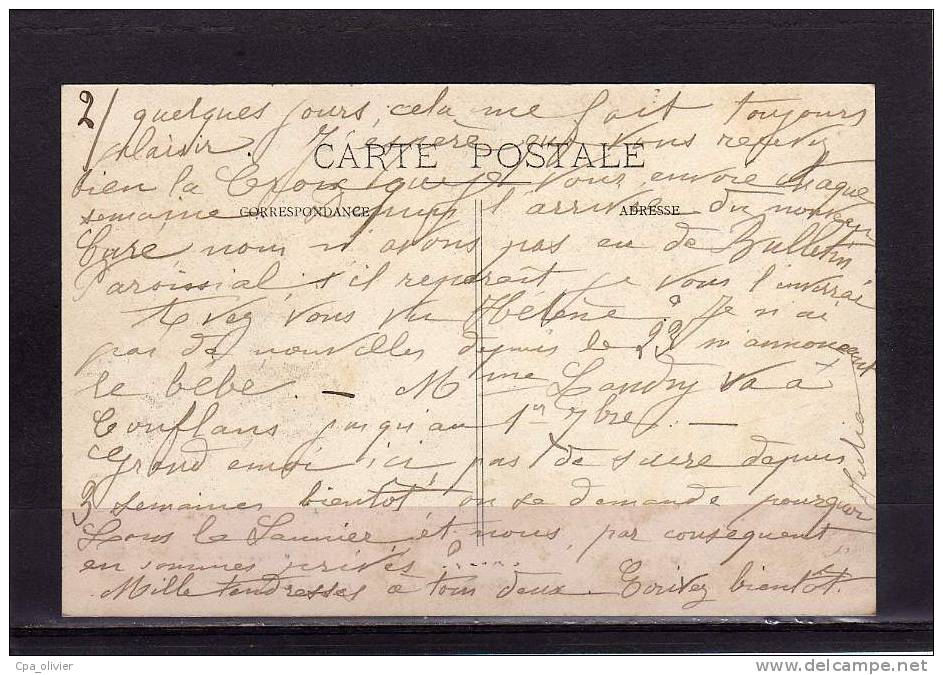 2/ quelques jours, cela me fait toujours
plaisir. J'espère que vous recevez
CARTE POSTALE
bien la Croix que je vous envoie chaque
CORRESPONDANCE
ADRESSE
semaine. Depuis l'arrivée du nouveau
Curé nous n'avons pas eu de Bulletin
Paroissial, s'il reparait je vous l'enverrai
Avez vous vu Hélène? Je n'ai
pas de nouvelles depuis le 23 m'annonçant
le bébé. — Mme Landry va à
Conflans jusqu'au 1er 7bre. —
Grand émoi ici, pas de sucre depuis
3 semaines bientôt, on se demande pourquoi
Lons le Saunier, et nous, par conséquent
en sommes privés?......
Mille tendresses à tous deux. Ecrivez bientôt.
Cpa_olivier
www.delcampe.net